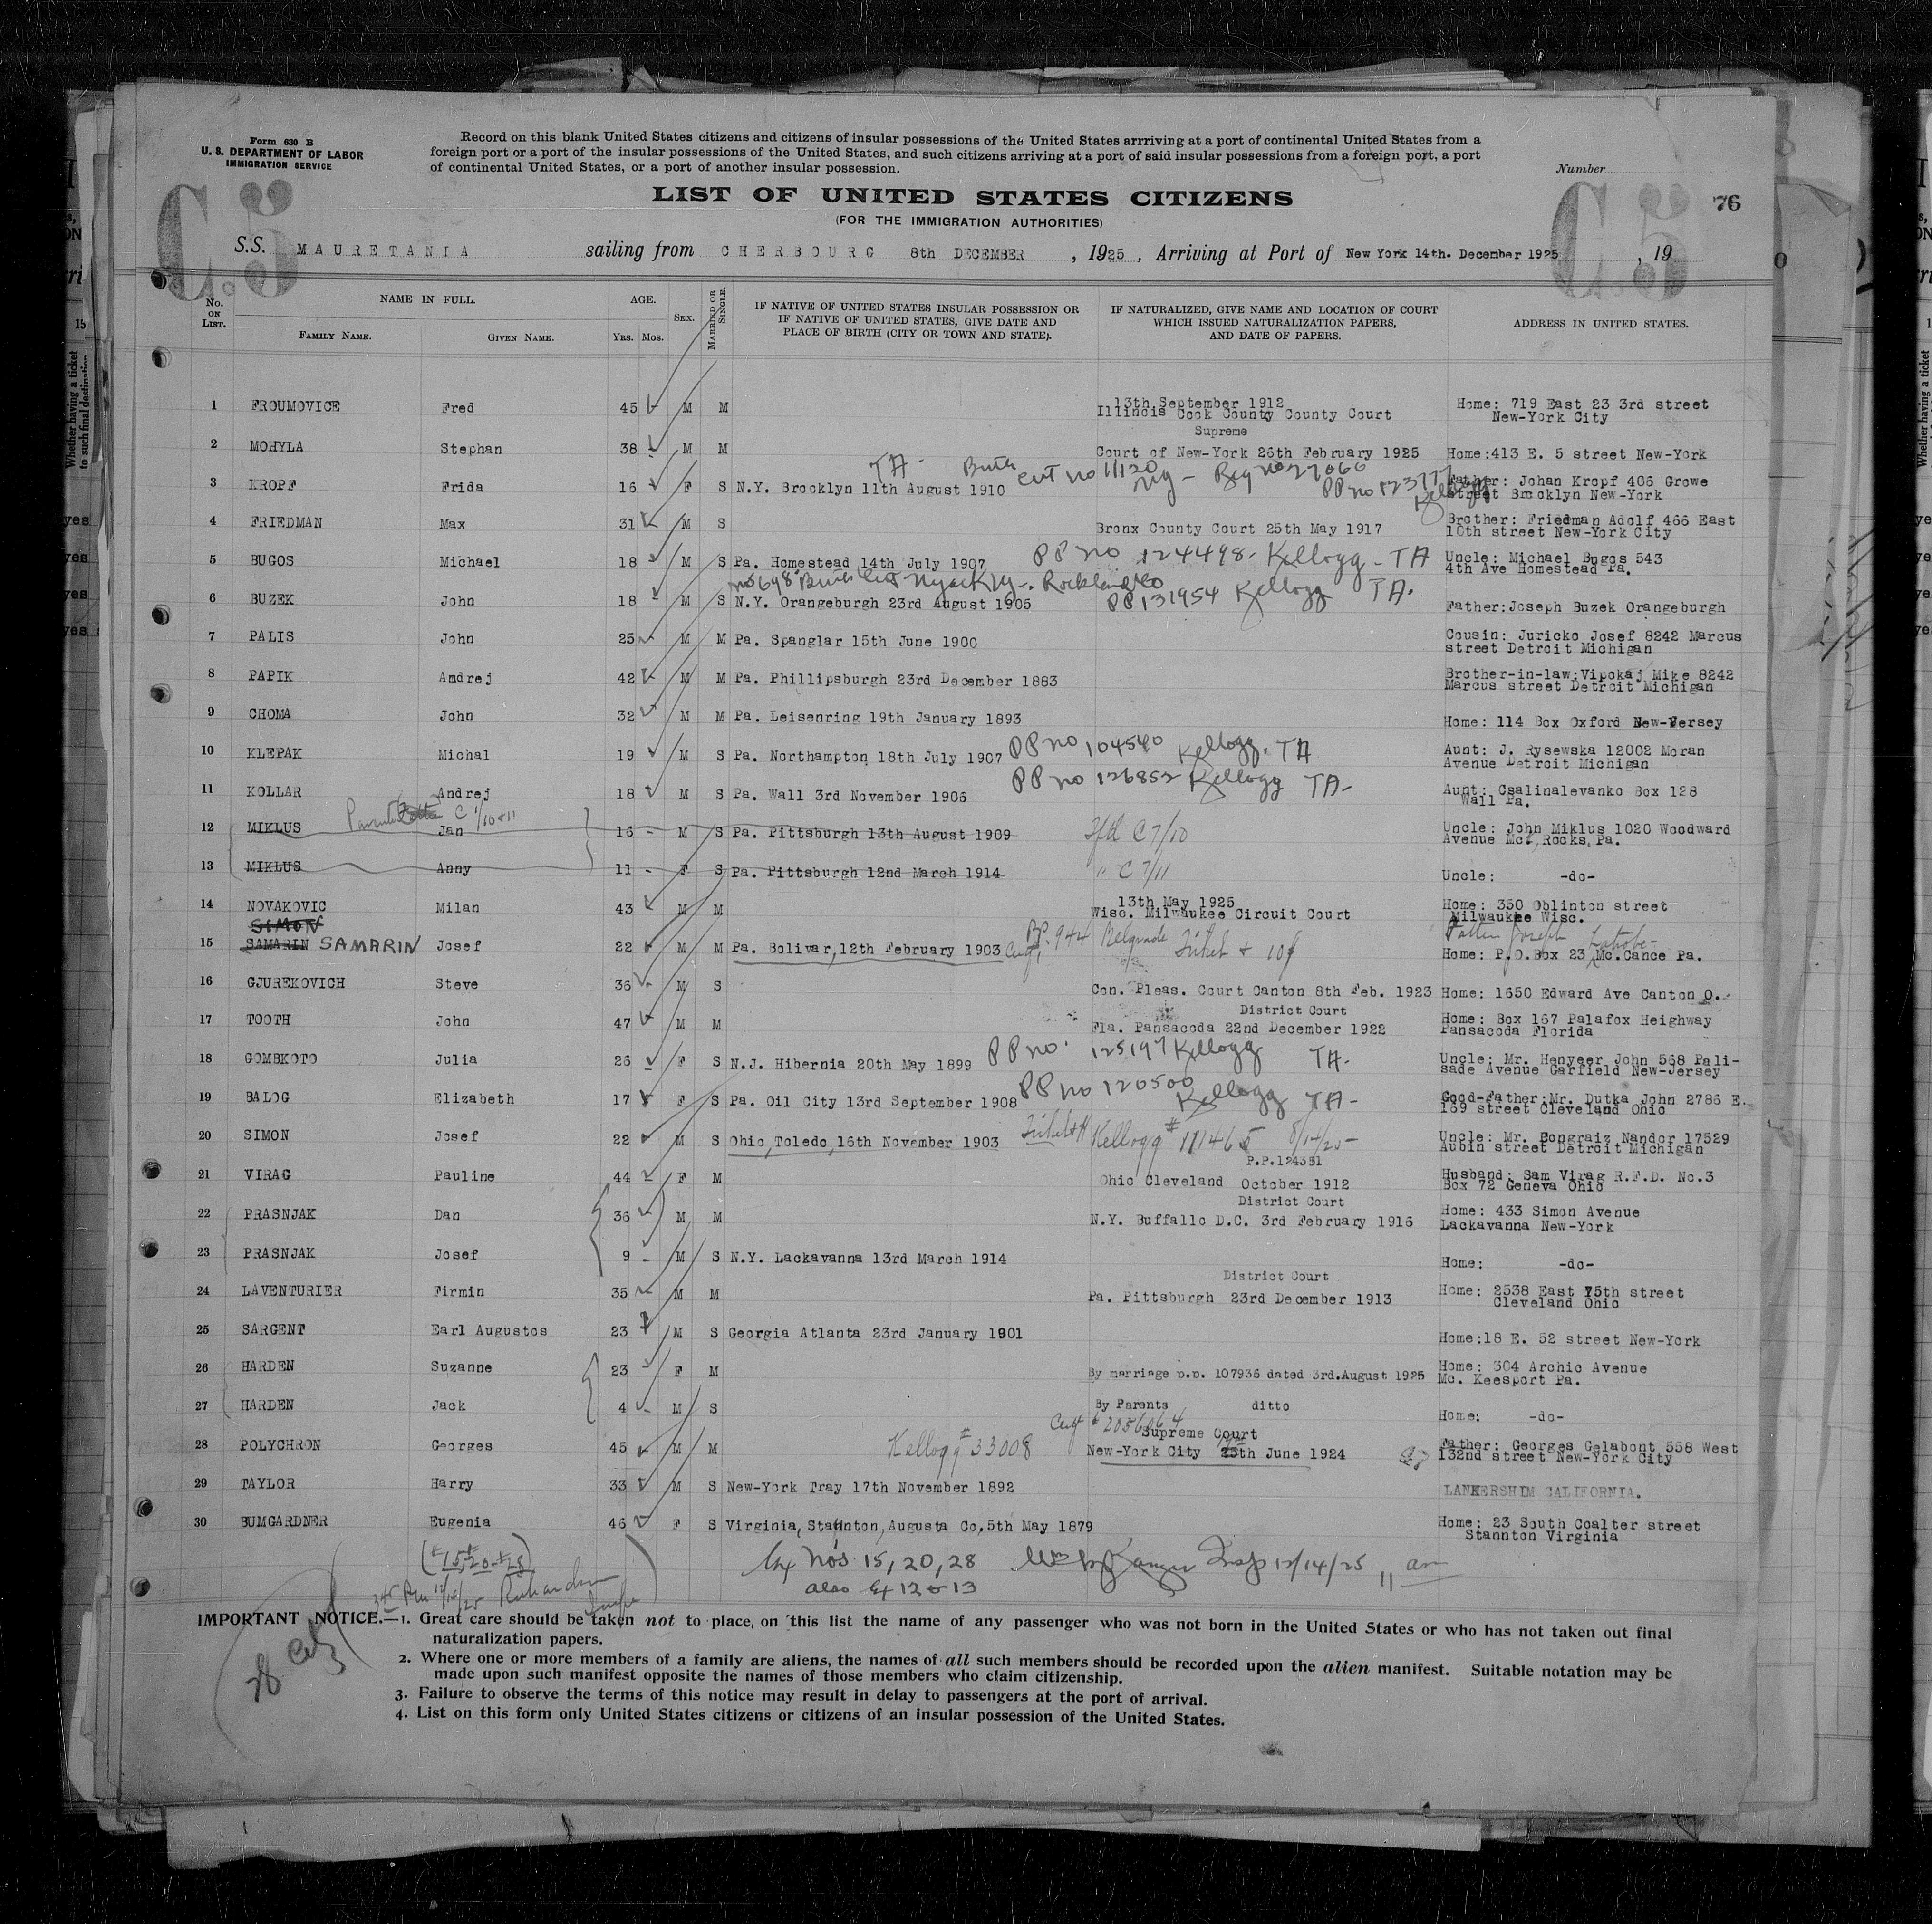 Form 630 B
U. S. DEPARTMENT OF LABOR
IMMIGRATION SERVICE
Record on this blank United States citizens and citizens of insular possessions of the United States arrriving at a port of continental United States from a
foreign port or a port of the insular possessions of the United States, and such citizens arriving at a port of said insular possessions from a foreign port, a port
of continental United States, or a port of another insular possession.
Number
C.5
C.5
76
LIST OF UNITED STATES CITIZENS
(FOR THE IMMIGRATION AUTHORITIES)
S.S. MAURETANIA sailing from CHERBOURG 8th DECEMBER , 1925 , Arriving at Port of New York 14th. December 1925 , 19
No. ON LIST. NAME IN FULL. FAMILY NAME. GIVEN NAME. AGE. YRS. MOS. SEX. MARRIED OR SINGLE. IF NATIVE OF UNITED STATES INSULAR POSSESSION OR IF NATIVE OF UNITED STATES, GIVE DATE AND PLACE OF BIRTH (CITY OR TOWN AND STATE). IF NATURALIZED, GIVE NAME AND LOCATION OF COURT WHICH ISSUED NATURALIZATION PAPERS, AND DATE OF PAPERS. ADDRESS IN UNITED STATES.
1 FROUMOVICE Fred 45 M M 13th September 1912 Illinois Cook County County Court Home: 719 East 23 3rd street New-York City
2 MOHYLA Stephan 38 M M Supreme Court of New-York 26th February 1925 Home:413 E. 5 street New-York
TA- Birth Cert no 11120 NY- Reg no 27066
3 KROPF Frida 16 F S N.Y. Brooklyn 11th August 1910 PP no Kellogg Father: Johan Kropf 406 Growe street Brooklyn New-York
4 FRIEDMAN Max 31 M S Bronx County Court 25th May 1917 Brother: Friedman Adolf 466 East 10th street New-York City
5 BUGOS Michael 18 M S Pa. Homestead 14th July 1907 PP no 124498- Kellogg- TA Uncle: Michael Bugos 543 4th Ave Homestead Pa.
no 698 Birth Cert Nyack NY-. Rockland Co
6 BUZEK John 18 M S N.Y. Orangeburgh 23rd August 1905 PP 131954 Kellogg TA. Father:Joseph Buzek Orangeburgh
7 PALIS John 25 M M Pa. Spanglar 15th June 1900 Cousin: Juricko Josef 8242 Marcus street Detroit Michigan
8 PAPIK Andrej 42 M M Pa. Phillipsburgh 23rd December 1883 Brother-in-law:Vipckaj Mike 8242 Marcus street Detroit Michigan
9 CHOMA John 32 M M Pa. Leisenring 19th January 1893 Home: 114 Box Oxford New-Versey
10 KLEPAK Michal 19 M S Pa. Northampton 18th July 1907 PP no 104540 Kellogg. TA Aunt: J. Rysewska 12002 Moran Avenue Detroit Michigan
11 KOLLAR Andrej 18 M S Pa. Wall 3rd November 1906 PP no 126852 Kellogg TA- Aunt: Csalinalevanko Box 128 Wall Pa.
12 MIKLUS Jan 16 - M S Pa. Pittsburgh 13th August 1909 C 7/10 Uncle: John Miklus 1020 Woodward Avenue Mct Rocks, Pa.
13 MIKLUS Anny 11 - F S Pa. Pittsburgh 12nd March 1914 " C 7/11 Uncle: -do-
14 NOVAKOVIC Milan 43 M M 13th May 1925 Wisc. Milwaukee Circuit Court Home: 350 Oblinton street Milwaukee Wisc.
SIMON
15 SAMARIN SAMARIN Josef 22 M M Pa. Bolivar,12th February 1903 PP. 944 Belgrade Ticket + 10f Joseph Latrobe- Home: P.O.Box 23 Mc.Cance Pa.
16 GJUREKOVICH Steve 36 M S Con. Pleas. Court Canton 8th Feb. 1923 Home: 1650 Edward Ave Canton O.
17 TOOTH John 47 M M District Court Fla. Pansacoda 22nd December 1922 Home: Box 167 Palafox Heighway Pansacoda Florida
18 GOMBKOTO Julia 26 F S N.J. Hibernia 20th May 1899 PP no. 125197 Kellogg TA- Uncle: Mr. Henyeer John 568 Pali- sade Avenue Garfield New-Jersey
19 BALOG Elizabeth 17 F S Pa. Oil City 13rd September 1908 PP no 120500 Kellogg TA- Good-Father:Mr. Dutka John 2786 E. 169 street Cleveland Ohio
20 SIMON Josef 22 M S Ohio,Toledo,16th November 1903 Kellogg # 111465 8/14/25- Uncle: Mr. Bongraiz Nandor 17529 Aubin street Detroit Michigan
21 VIRAG Pauline 44 F M P.P.124381 Ohio Cleveland October 1912 Husband: Sam Virag R.F.D. No.3 Box 72 Geneva Ohio
22 PRASNJAK Dan 36 M M District Court N.Y. Buffallo D.C. 3rd February 1916 Home: 433 Simon Avenue Lackavanna New-York
23 PRASNJAK Josef 9 - M S N.Y. Lackavanna 13rd March 1914 Home: -do-
24 LAVENTURIER Firmin 35 M M District Court Pa. Pittsburgh 23rd December 1913 Home: 2538 East 75th street Cleveland Ohio
25 SARGENT Earl Augustos 23 M S Georgia Atlanta 23rd January 1901 Home:18 E. 52 street New-York
26 HARDEN Suzanne 23 F M By marriage p.p. 107936 dated 3rd.August 1925 Home: 304 Archio Avenue Mc. Keesport Pa.
27 HARDEN Jack 4 - M S By Parents ditto Home: -do-
28 POLYCHRON Georges 45 M M Kellogg # 33008 Cert # 2056064 Supreme Court New-York City 25th June 1924 Father: Georges Gelabont 558 West 132nd street New-York City
29 TAYLOR Harry 33 M S New-York Tray 17th November 1892 LANKERSHIM CALIFORNIA.
30 BUMGARDNER Eugenia 46 F S Virginia, Staunton, Augusta Co.5th May 1879 Home: 23 South Coalter street Stannton Virginia
(#15#20-#28)
Ex Nos 15, 20, 28 Insp 12/14/25
also Ex 12 & 13
Richardson
IMPORTANT NOTICE.—1. Great care should be taken not to place on this list the name of any passenger who was not born in the United States or who has not taken out final
naturalization papers.
2. Where one or more members of a family are aliens, the names of all such members should be recorded upon the alien manifest. Suitable notation may be
made upon such manifest opposite the names of those members who claim citizenship.
3. Failure to observe the terms of this notice may result in delay to passengers at the port of arrival.
4. List on this form only United States citizens or citizens of an insular possession of the United States.